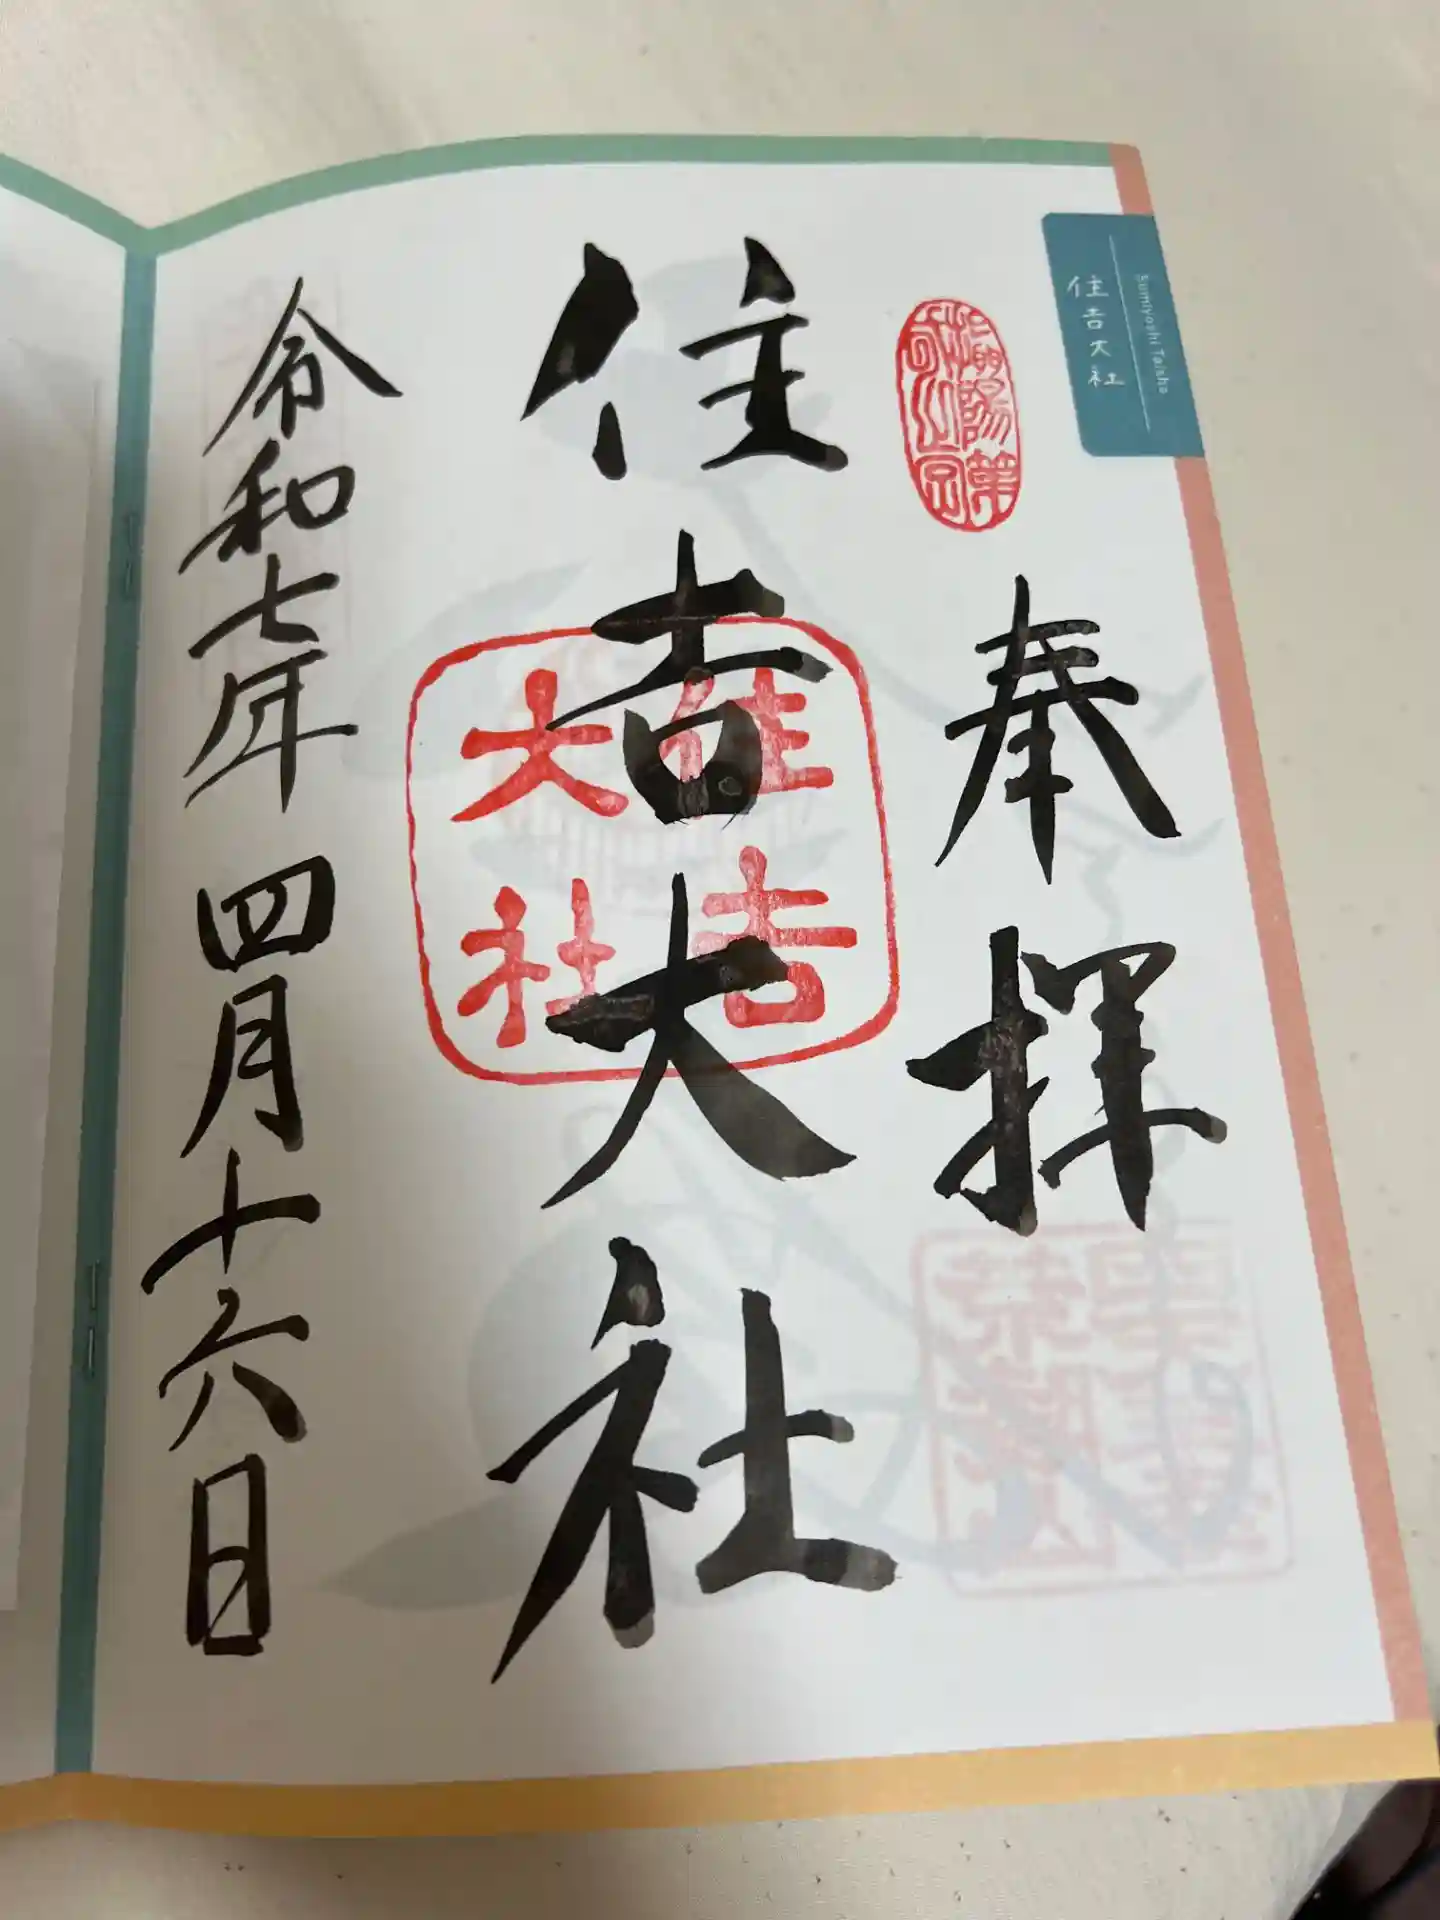 Sumiyoshi Taisha
住吉大社
奉拝
住吉大社
住吉
大社
令和七年 四月十六日